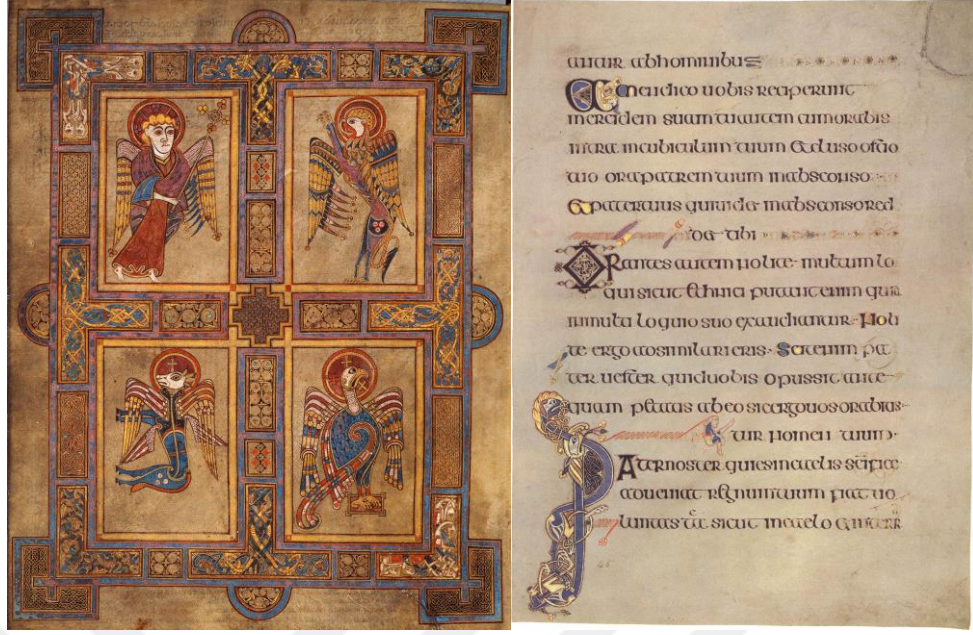 antur abhominibus
Amendico uobis reciperunt
mercidem suam tuautem cumorabis
intra incubiculum tuum Etcluso ostio
tuo orapatrem tuum inabsconso
Et patertuus quiuidet inabsconso red
det tibi
Orantes autem nolite multum lo
qui sicut Ethnici putant enim quia
inmulto loquio suo exaudiantur Noli
te ergo adsimilari eris Scit enim pa
ter uester quiduobis opussit ante
quam petatis abeo sicergouos orabitis
tur nomen tuum
Pater noster quiesincaelis scifice
adueniat regnum tuum fiat uo
luntas tua sicut incaelo et interra